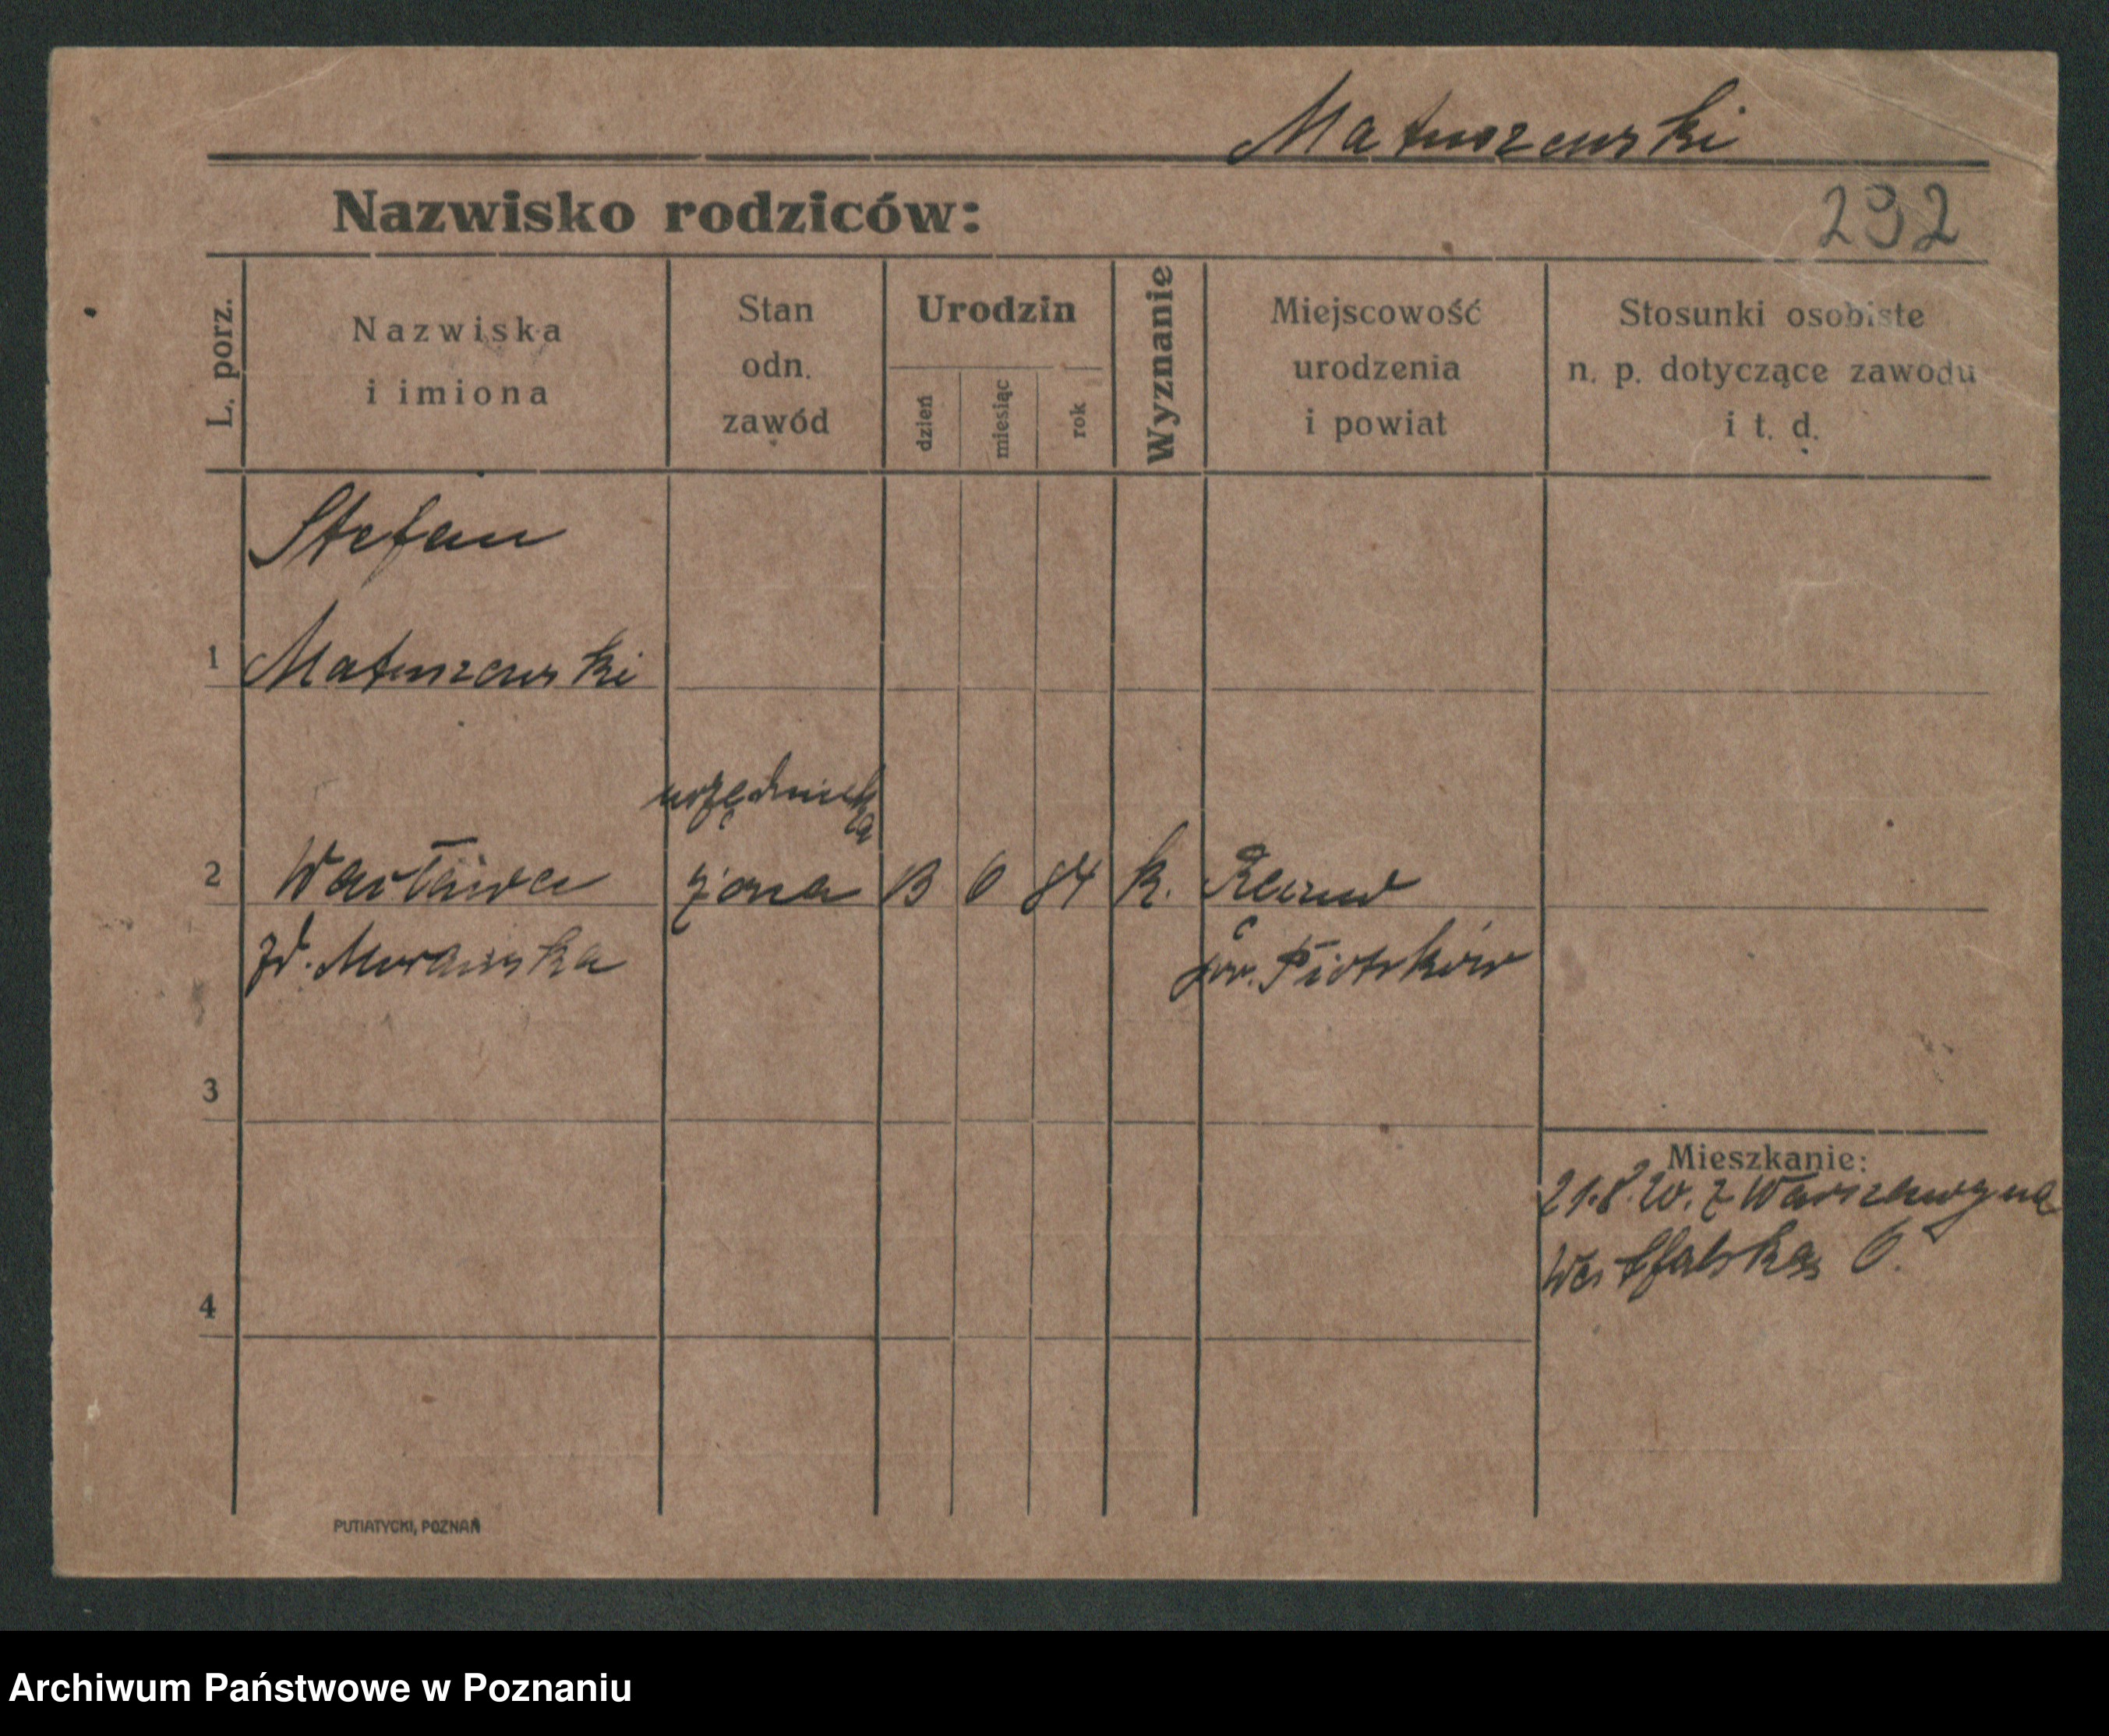 Matuszewski
Nazwisko rodziców:
292
L. porz.
Nazwiska
i imiona
Stan
odn.
zawód
Urodzin
dzień
miesiąc
rok
Wyznanie
Miejscowość
urodzenia
i powiat
Stosunki osobiste
n. p. dotyczące zawodu
i t. d.
Stefan
1 Matuszewski
urzędniczka
2 Wacława żona 13 6 84 k.
zd. Morawska pow. Piotrków
3
Mieszkanie:
21.8.20. z Warszawy na
Westfalską 6.
4
PUTIATYCKI, POZNAŃ
Archiwum Państwowe w Poznaniu